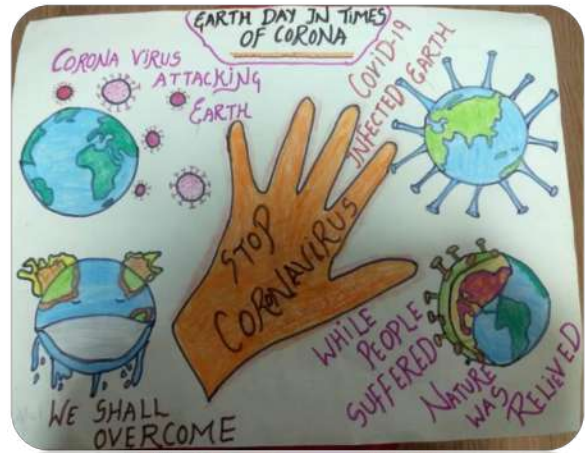 EARTH DAY IN TIMES
OF CORONA
CORONA VIRUS
ATTACKING
EARTH
COVID-19
INFECTED EARTH
STOP
CORONAVIRUS
WE SHALL
OVERCOME
WHILE
PEOPLE
SUFFERED
NATURE
WAS
RELIEVED